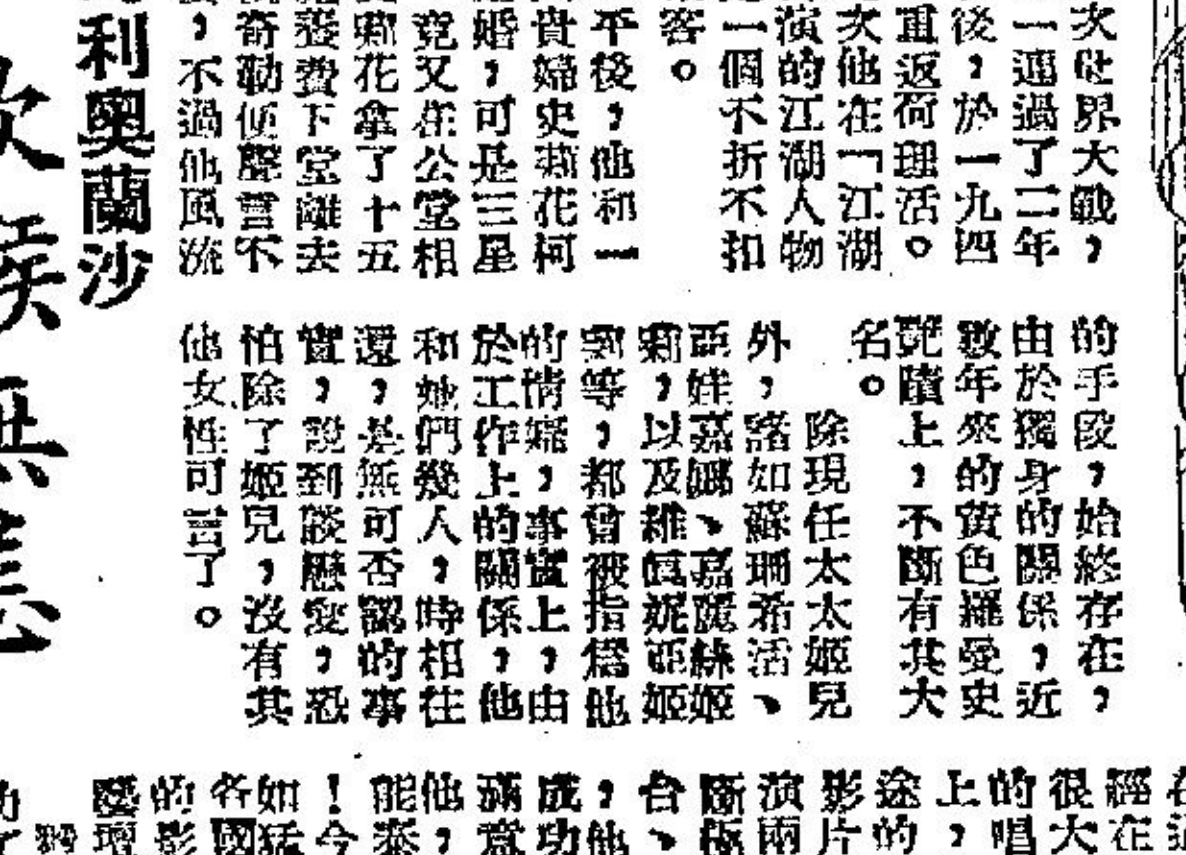 次世界大戰，
一連過了二年
後，於一九四
重返荷理活。
次他在「江湖
演的江湖人物
一個不折不扣
客。
平後，他和一
貴婦史莉花柯
婚，可是三星
竟又在公堂相
莉花拿了十五
養費下堂離去
奇勒便聲言不
，不過他風流
利奧蘭沙
的手段，始終存在，
由於獨身的關係，近
數年來的黃色羅曼史
艷蹟上，不斷有其大
名。
除現任太太姬兒
外，諸如蘇珊希活、
亞娃嘉娜、嘉麗絲姬
莉，以及維真妮亞姬
等，都曾被指爲他
的情婦，事實上，由
於工作上的關係，他
和她們幾人，時相往
還，是無可否認的事
實，說到談戀愛，恐
怕除了姬兒，沒有其
他女性可言了。
經在
很大
的唱
上，
途的
影片
演兩
斷
台、
，他
成功
滿意
他，
能
！今
如猛
各國
的影